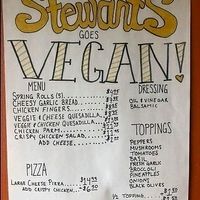 Stewart's
GOES
VEGAN!
MENU
SPRING ROLLS (3)
CHEESY GARLIC BREAD
CHICKEN FINGERS
VEGGIE & CHEESE QUESADILLA
VEGGIE & CHICKEN QUESADILLA
CHICKEN PARM
CRISPY CHICKEN SALAD
ADD CHEESE
DRESSING
OIL & VINEGAR
BALSAMIC
TOPPINGS
PEPPERS
MUSHROOMS
TOMATOES
BASIL
FRESH GARLIC
BROCCOLI
PINEAPPLES
ONIONS
BLACK OLIVES
1/2 TOPPING
PIZZA
LARGE CHEESE PIZZA
ADD CRISPY CHICKEN